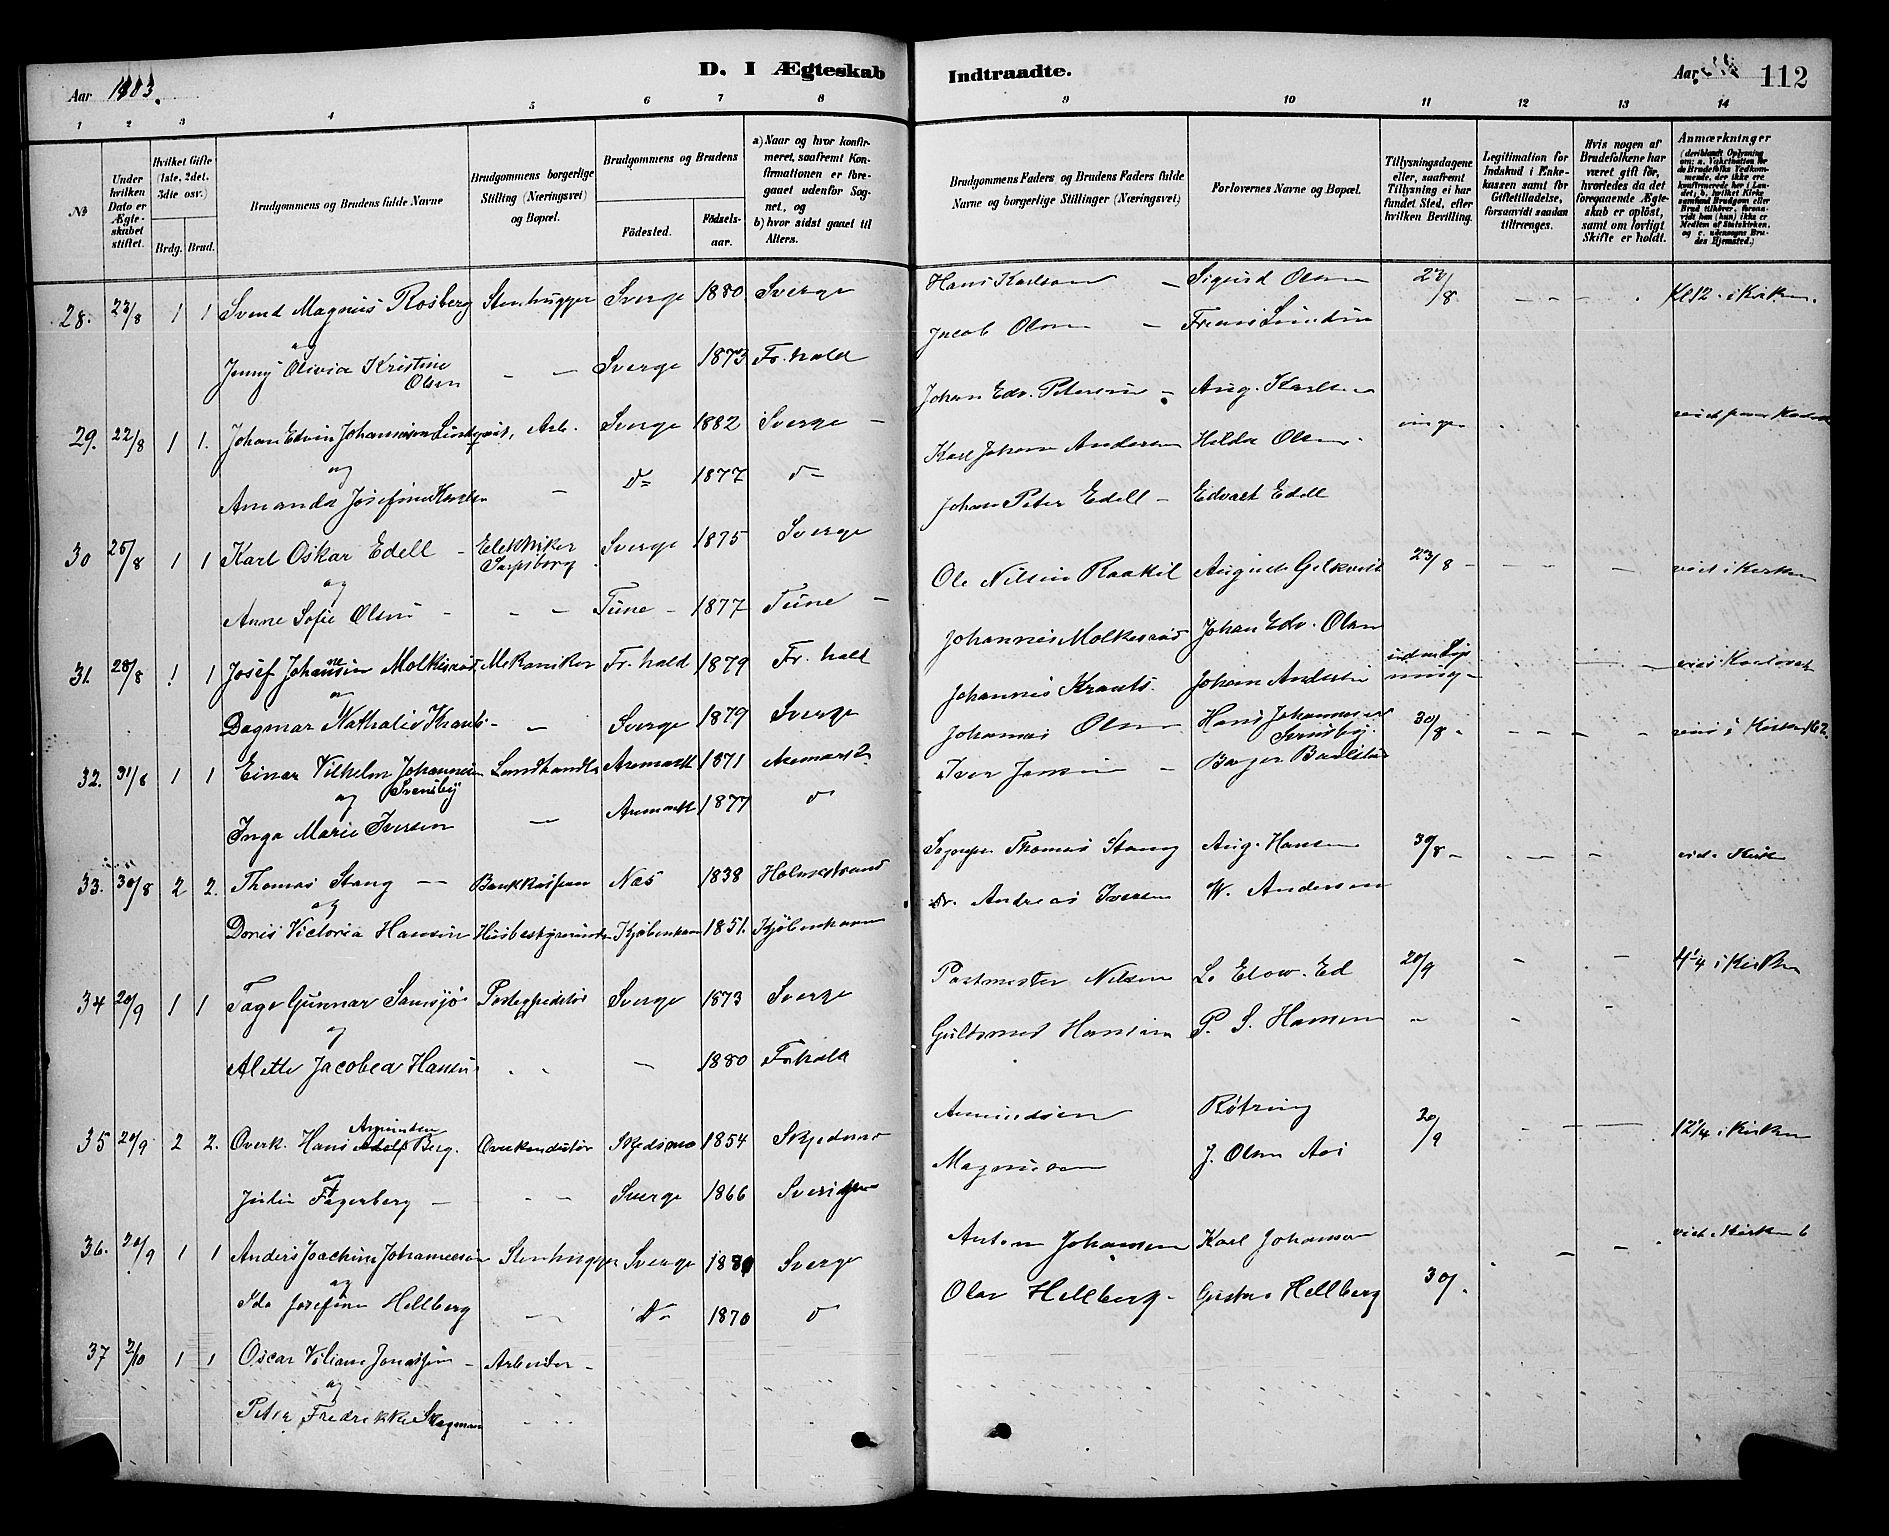 D. I Ægteskab Indtraadte.
Aar 1903.
Aar
112
1 2 3 4 5 6 7 8 9 10 11 12 13 14
№
Under hvilken Dato er Ægteskabet stiftet.
Hvilket Gifte (1ste, 2det, 3die osv.)
Brdg. Brud.
Brudgommens og Brudens fulde Navne
Brudgommens borgerlige Stilling (Næringsvei) og Bopæl.
Brudgommens og Brudens
Fødested.
Fødselsaar.
a) Naar og hvor konfirmeret, saafremt Konfirmationen er foregaaet udenfor Sognet, og
b) hvor sidst gaaet til Alters.
Brudgommens Faders og Brudens Faders fulde Navne og borgerlige Stillinger (Næringsvei)
Forlovernes Navne og Bopæl.
Tillysningsdagene eller, saafremt Tillysning ei har fundet Sted, efter hvilken Bevilling.
Legitimation for Indskud i Enkekassen samt for Giftetilladelse, forsaavidt saadan tiltrænges.
Hvis nogen af Brudefolkene har været gift før, hvorledes da det foregaaende Ægteskab er opløst, samt om lovligt Skifte er holdt.
Anmærkninger
28. 1 1 Svend Magnus Rosberg Stenhugger Sverge 1880 Sverge Hans Karlson Sigurd Olsen Kl 12 i Kirken.
og
Jenny Olivia Kristine Olsen — — Sverge 1873 Fr.hald Jacob Olsen
29. 22/8 1 1. Johan Edvin Johannesen Lindqvist, Arb. Sverge 1882 Sverge Johan Edv. Petersen Aug. Karlsen ingen
og
Amanda Josefine — 1877 Karl Johan Andersen Hilda Olsen
30 1 1 Karl Oskar Edell Elektriker Sarpsborg Sverge 1875 Sverge Johan Peter Edell Edvart Edell
og
Anne Sofie Olsen — — Tune 1877 Tune Ole Nilsen Raakil 23/8 viet i Kirken
31. 28/8 1 1 Josef Johansen Molkesrød Mekaniker Fr. hald 1879 Fr. hald Johannes Molkesrød Johan Edv. Olsen
og
Dagmar Nathalie Krants — Sverge 1879 Sverge Johannes Krants. Johan Andersen
32. 31/8 1 1 Einar Vilhelm Johannesen Svensby Landhandler Aremark 1871 Aremark Johannes Olsen Hans Johannesen Svensby 30/8
og
Inga Marie Iversen — Aremark 1877 Iver Jensen
33. 30/8 2 2. Thomas Stang — Bankkasserer Næs 1838 Holmestrand Thomas Stang Aug. Hansen 30/8
og
Doris Victoria Hansen Husbestyrerinde Kjøbenhavn 1851. Kjøbenhavn Andreas Iversen W. Andersen
34 20/9 1 1 Tage Gunnar Samsjø Postexpeditør Sverge 1873 Sverge Postmester Nilsen 20/9 i Kirken
og
Alette Jacobea Hansen — 1880 Fr.hald Guldsmed Hansen P. S. Hansen
35 20/9 2 2. Overk. Hans Asmundsen Berg. Overkonduktør Skedsmo 1854 Skjedsmo Asmundsen Røtring 20/9 12 1/4 i Kirken
og
Julie Fagerberg — Sverge 1866 Magnusen J. Olsen Aas
36. 20/9 1 1 Anders Joachim Johannesen Stenhugger Sverge Sverge Anton Johansen Karl Johanson viet i Kirken 6
og
Ida Josefine Hellberg 1870 Olav Hellberg Gustav Hellberg
37 2/10 1 1 Oscar Viliam Jonassen Arbeider
og
Petra Fredrikke Skogman